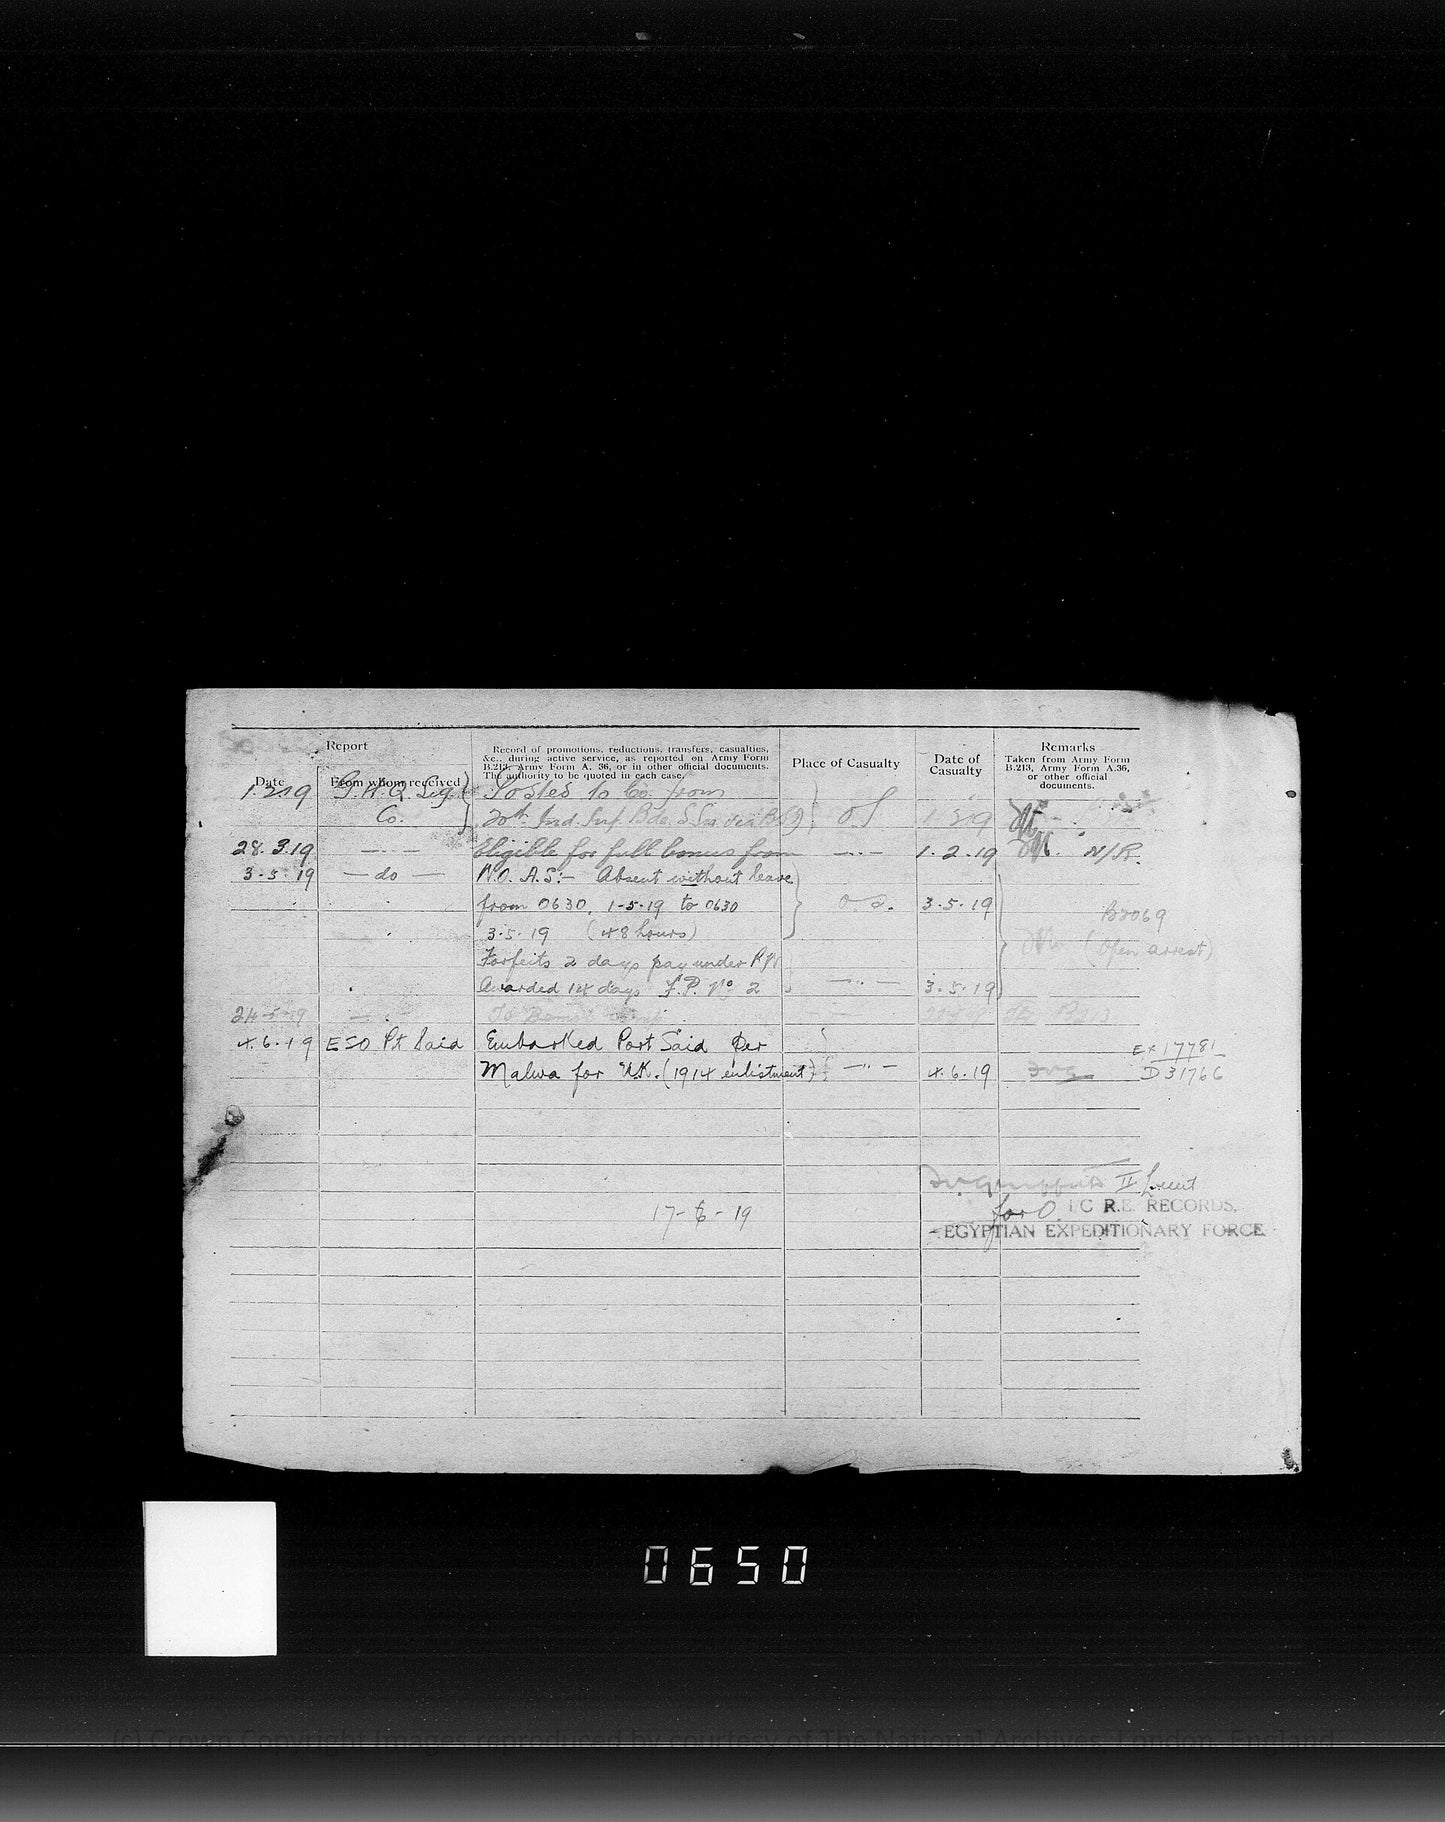 Report
Date
From whom received
Record of promotions, reductions, transfers, casualties,
&c., during active service, as reported on Army Form
B.213, Army Form A. 36, or in other official documents.
The authority to be quoted in each case.
Place of Casualty
Date of
Casualty
Remarks
Taken from Army Form
B.213, Army Form A.36,
or other official
documents.
1.2.19 G.H.Q. Sig Posted to Co. from
Co. 20th Ind. Inf. Bde. 1.2.19
28.3.19 Eligible for full bonus from 1.2.19 N/R.
3.5.19 — do — W.O.A.S:- Absent without leave
from 0630, 1-5-19 to 0630 3.5.19 B2069
3.5.19 (48 hours) (Open arrest)
Forfeits 2 days pay under
Awarded 14 days F.P. No 2 3.5.19
24-5-19 B213
4.6.19 ESO Pt Said Embarked Port Said per Ex 17781
Malwa for U.K. (1914 enlistment) 4.6.19 D31766
II Lieut
17-6-19 for O. I/C R.E. RECORDS,
EGYPTIAN EXPEDITIONARY FORCE
0650
(c) Crown Copyright Images reproduced by courtesy of The National Archives, London, England.